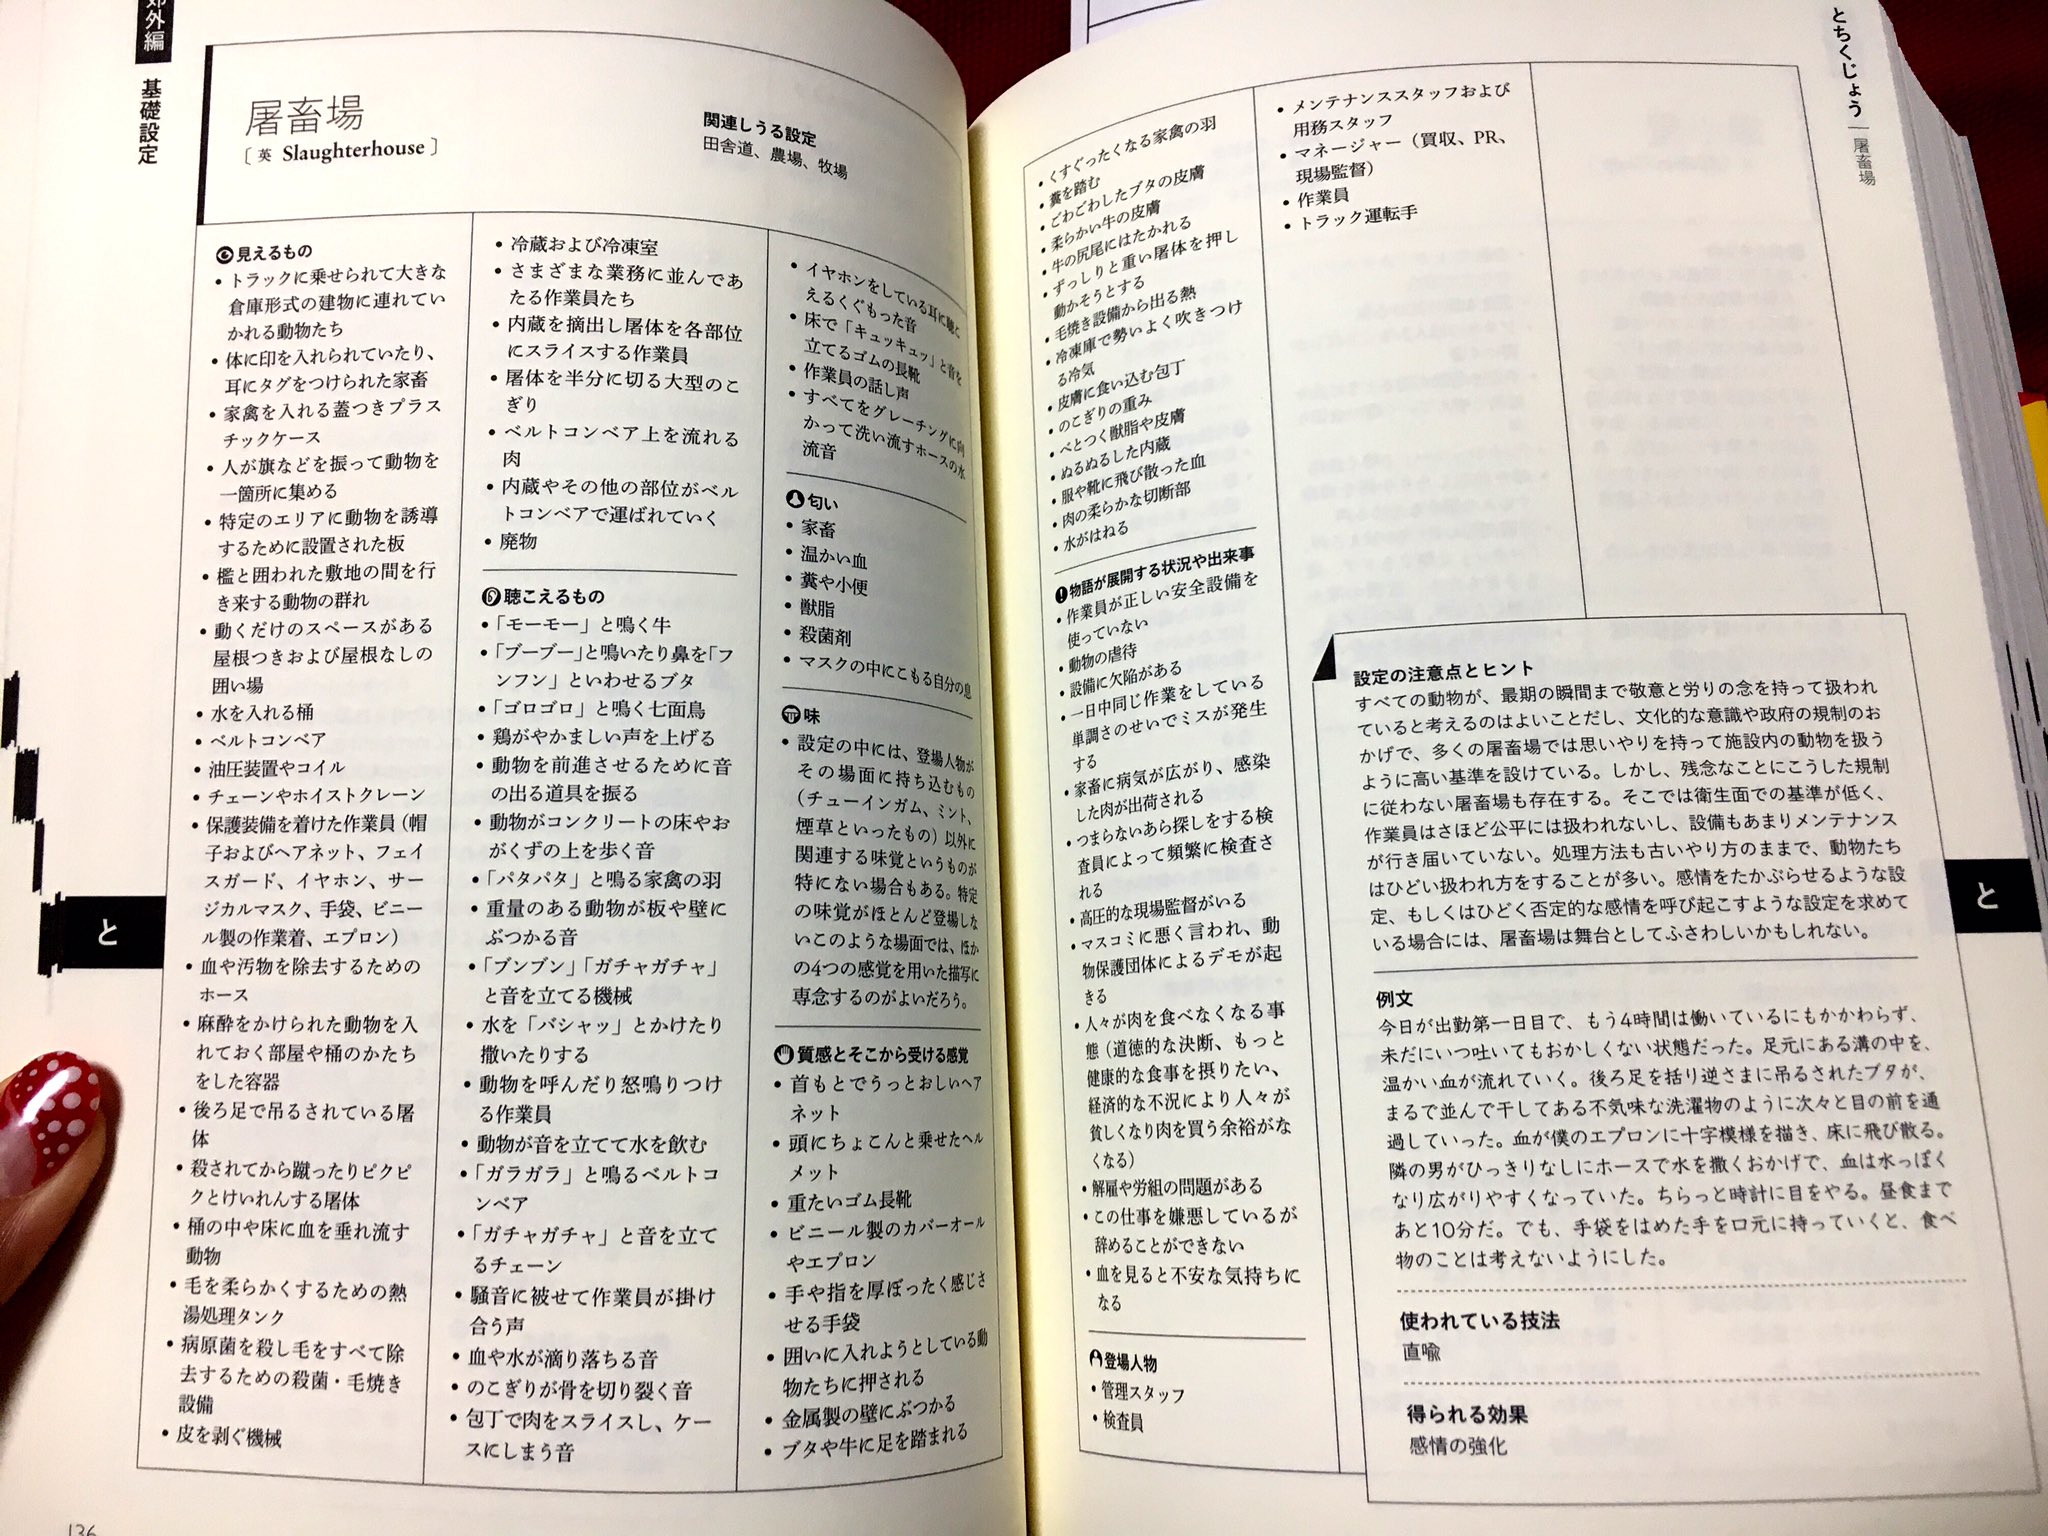 郊外編
基礎設定
屠畜場
[英 Slaughterhouse]
関連しうる設定
田舎道、農場、牧場
見えるもの
• トラックに乗せられて大きな
倉庫形式の建物に連れてい
かれる動物たち
• 体に印を入れられていたり、
耳にタグをつけられた家畜
• 家禽を入れる蓋つきプラス
チックケース
• 人が旗などを振って動物を
一箇所に集める
• 特定のエリアに動物を誘導
するために設置された板
• 檻と囲われた敷地の間を行
き来する動物の群れ
• 動くだけのスペースがある
屋根つきおよび屋根なしの
囲い場
• 水を入れる桶
• ベルトコンベア
• 油圧装置やコイル
• チェーンやホイストクレーン
• 保護装備を着けた作業員（帽
子およびヘアネット、フェイ
スガード、イヤホン、サー
ジカルマスク、手袋、ビニー
ル製の作業着、エプロン）
• 血や汚物を除去するための
ホース
• 麻酔をかけられた動物を入
れておく部屋や桶のかたち
をした容器
• 後ろ足で吊るされている屠
体
• 殺されてから蹴ったりピクピ
クとけいれんする屠体
• 桶の中や床に血を垂れ流す
動物
• 毛を柔らかくするための熱
湯処理タンク
• 病原菌を殺し毛をすべて除
去するための殺菌・毛焼き
設備
• 皮を剥ぐ機械
• 冷蔵および冷凍室
• さまざまな業務に並んであ
たる作業員たち
• 内蔵を摘出し屠体を各部位
にスライスする作業員
• 屠体を半分に切る大型のこ
ぎり
• ベルトコンベア上を流れる
肉
• 内蔵やその他の部位がベル
トコンベアで運ばれていく
• 廃物
聴こえるもの
• 「モーモー」と鳴く牛
• 「ブーブー」と鳴いたり鼻を「フ
ンフン」といわせるブタ
• 「ゴロゴロ」と鳴く七面鳥
• 鶏がやかましい声を上げる
• 動物を前進させるために音
の出る道具を振る
• 動物がコンクリートの床やお
がくずの上を歩く音
• 「パタパタ」と鳴る家禽の羽
• 重量のある動物が板や壁に
ぶつかる音
• 「ブンブン」「ガチャガチャ」
と音を立てる機械
• 水を「バシャッ」とかけたり
撒いたりする
• 動物を呼んだり怒鳴りつけ
る作業員
• 動物が音を立てて水を飲む
• 「ガラガラ」と鳴るベルトコ
ンベア
• 「ガチャガチャ」と音を立て
るチェーン
• 騒音に被せて作業員が掛け
合う声
• 血や水が滴り落ちる音
• のこぎりが骨を切り裂く音
• 包丁で肉をスライスし、ケー
スにしまう音
• イヤホンをしている耳に聴こ
えるくぐもった音
• 床で「キュッキュッ」と音を
立てるゴムの長靴
• 作業員の話し声
• すべてをグレーチングに向
かって洗い流すホースの水
流音
匂い
• 家畜
• 温かい血
• 糞や小便
• 獣脂
• 殺菌剤
• マスクの中にこもる自分の息
味
• 設定の中には、登場人物が
その場面に持ち込むもの
（チューインガム、ミント、
煙草といったもの）以外に
関連する味覚というものが
特にない場合もある。特定
の味覚がほとんど登場しな
いこのような場面では、ほか
の4つの感覚を用いた描写に
専念するのがよいだろう。
質感とそこから受ける感覚
• 首もとでうっとおしいヘア
ネット
• 頭にちょこんと乗せたヘル
メット
• 重たいゴム長靴
• ビニール製のカバーオール
やエプロン
• 手や指を厚ぼったく感じさ
せる手袋
• 囲いに入れようとしている動
物たちに押される
• 金属製の壁にぶつかる
• ブタや牛に足を踏まれる
と
136
とちくじょう｜屠畜場
• くすぐったくなる家禽の羽
• 糞を踏む
• ごわごわしたブタの皮膚
• 柔らかい牛の皮膚
• 牛の尻尾にはたかれる
• ずっしりと重い屠体を押し
動かそうとする
• 毛焼き設備から出る熱
• 冷凍庫で勢いよく吹きつけ
る冷気
• 皮膚に食い込む包丁
• のこぎりの重み
• べとつく獣脂や皮膚
• ぬるぬるした内蔵
• 服や靴に飛び散った血
• 肉の柔らかな切断部
• 水がはねる
物語が展開する状況や出来事
• 作業員が正しい安全設備を
使っていない
• 動物の虐待
• 設備に欠陥がある
• 一日中同じ作業をしている
単調さのせいでミスが発生
する
• 家畜に病気が広がり、感染
した肉が出荷される
• つまらないあら探しをする検
査員によって頻繁に検査さ
れる
• 高圧的な現場監督がいる
• マスコミに悪く言われ、動
物保護団体によるデモが起
きる
• 人々が肉を食べなくなる事
態（道徳的な決断、もっと
健康的な食事を摂りたい、
経済的な不況により人々が
貧しくなり肉を買う余裕がな
くなる）
• 解雇や労組の問題がある
• この仕事を嫌悪しているが
辞めることができない
• 血を見ると不安な気持ちに
なる
登場人物
• 管理スタッフ
• 検査員
• メンテナンススタッフおよび
用務スタッフ
• マネージャー（買収、PR、
現場監督）
• 作業員
• トラック運転手
設定の注意点とヒント
すべての動物が、最期の瞬間まで敬意と労りの念を持って扱われ
ていると考えるのはよいことだし、文化的な意識や政府の規制のお
かげで、多くの屠畜場では思いやりを持って施設内の動物を扱う
ように高い基準を設けている。しかし、残念なことにこうした規制
に従わない屠畜場も存在する。そこでは衛生面での基準が低く、
作業員はさほど公平には扱われないし、設備もあまりメンテナンス
が行き届いていない。処理方法も古いやり方のままで、動物たち
はひどい扱われ方をすることが多い。感情をたかぶらせるような設
定、もしくはひどく否定的な感情を呼び起こすような設定を求めて
いる場合には、屠畜場は舞台としてふさわしいかもしれない。
例文
今日が出勤第一日目で、もう4時間は働いているにもかかわらず、
未だにいつ吐いてもおかしくない状態だった。足元にある溝の中を、
温かい血が流れていく。後ろ足を括り逆さまに吊るされたブタが、
まるで並んで干してある不気味な洗濯物のように次々と目の前を通
過していった。血が僕のエプロンに十字模様を描き、床に飛び散る。
隣の男がひっきりなしにホースで水を撒くおかげで、血は水っぽく
なり広がりやすくなっていた。ちらっと時計に目をやる。昼食まで
あと10分だ。でも、手袋をはめた手を口元に持っていくと、食べ
物のことは考えないようにした。
使われている技法
直喩
得られる効果
感情の強化
と